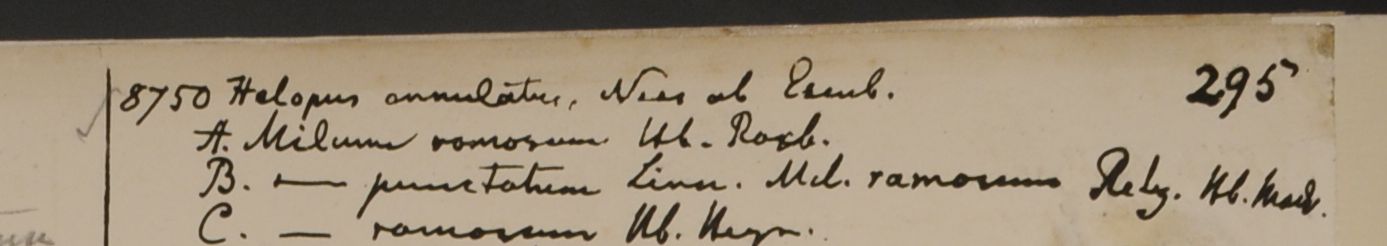 8750 Helopus annulatus, Nees ab Esenb. 295
A. Milium ramosum Hb. Roxb.
B. — punctatum Linn. Mil. ramosum Retz. Hb. Madr.
C. — ramosum Hb. Heyn.